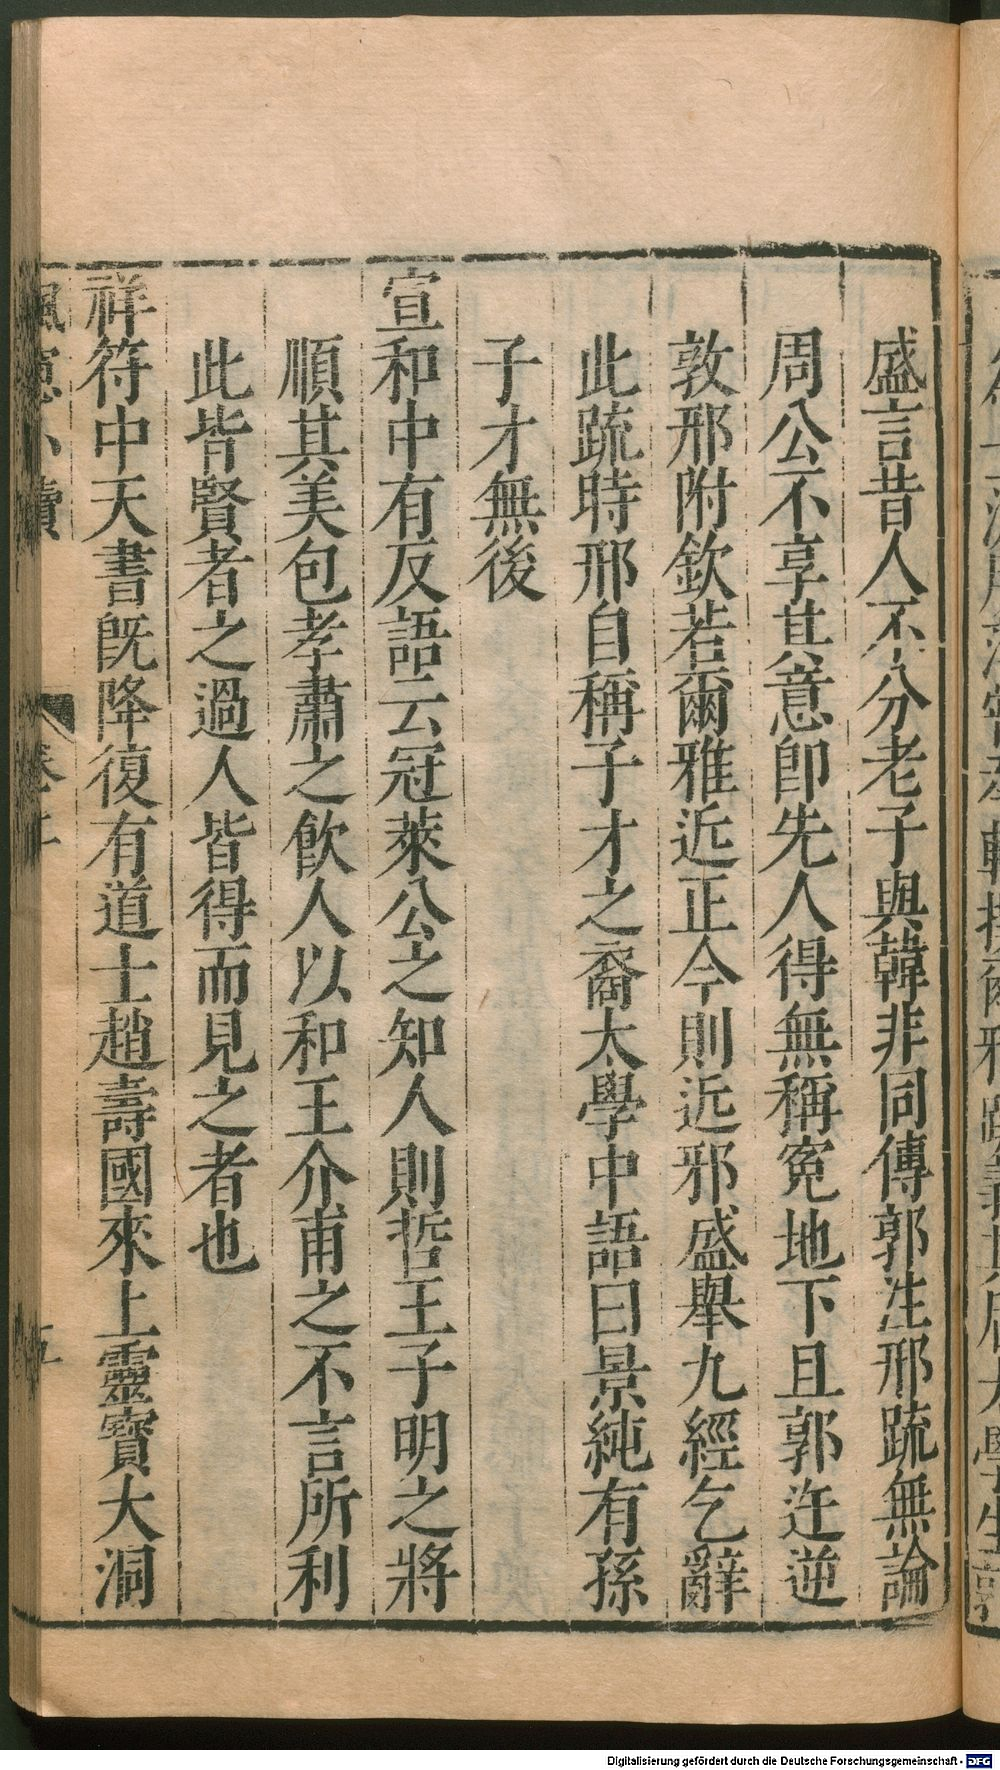 盛言昔人不分老子與韓非同傳郭注邢疏無論
周公不享其意卽先人得無稱寃地下且郭迕逆
敦邪附欽若爾雅近正今則近邪盛舉九經乞辭
此疏時邢自稱子才之裔太學中語曰景純有孫
子才無後
宣和中有反語云冠萊公之知人則哲王子明之將
順其美包孝肅之飲人以和王介甫之不言所利
此皆賢者之過人皆得而見之者也
祥符中天書既降復有道士趙壽國來上靈寶大洞
楓窻小牘
卷上
五
Digitalisierung gefördert durch die Deutsche Forschungsgemeinschaft - DFG